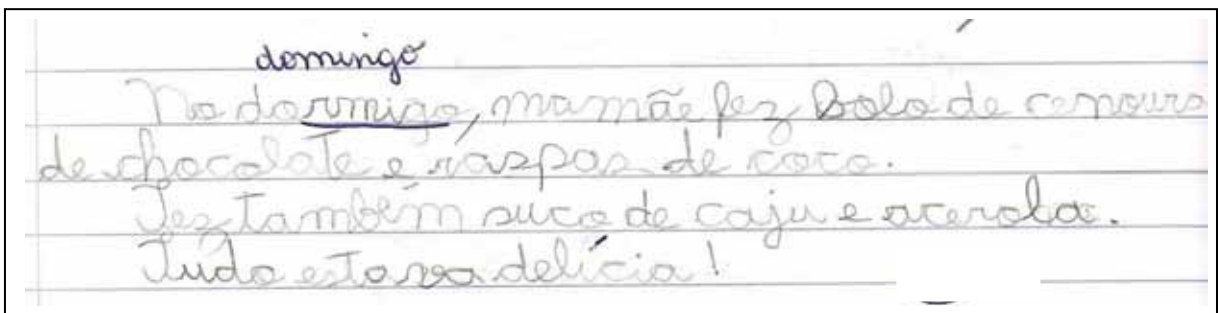 domingo
No dormigo, mamãe fez Bolo de cenoura
de chocolate e raspas de coco.
Fez também suco de caju e acerola.
Tudo estava delícia!